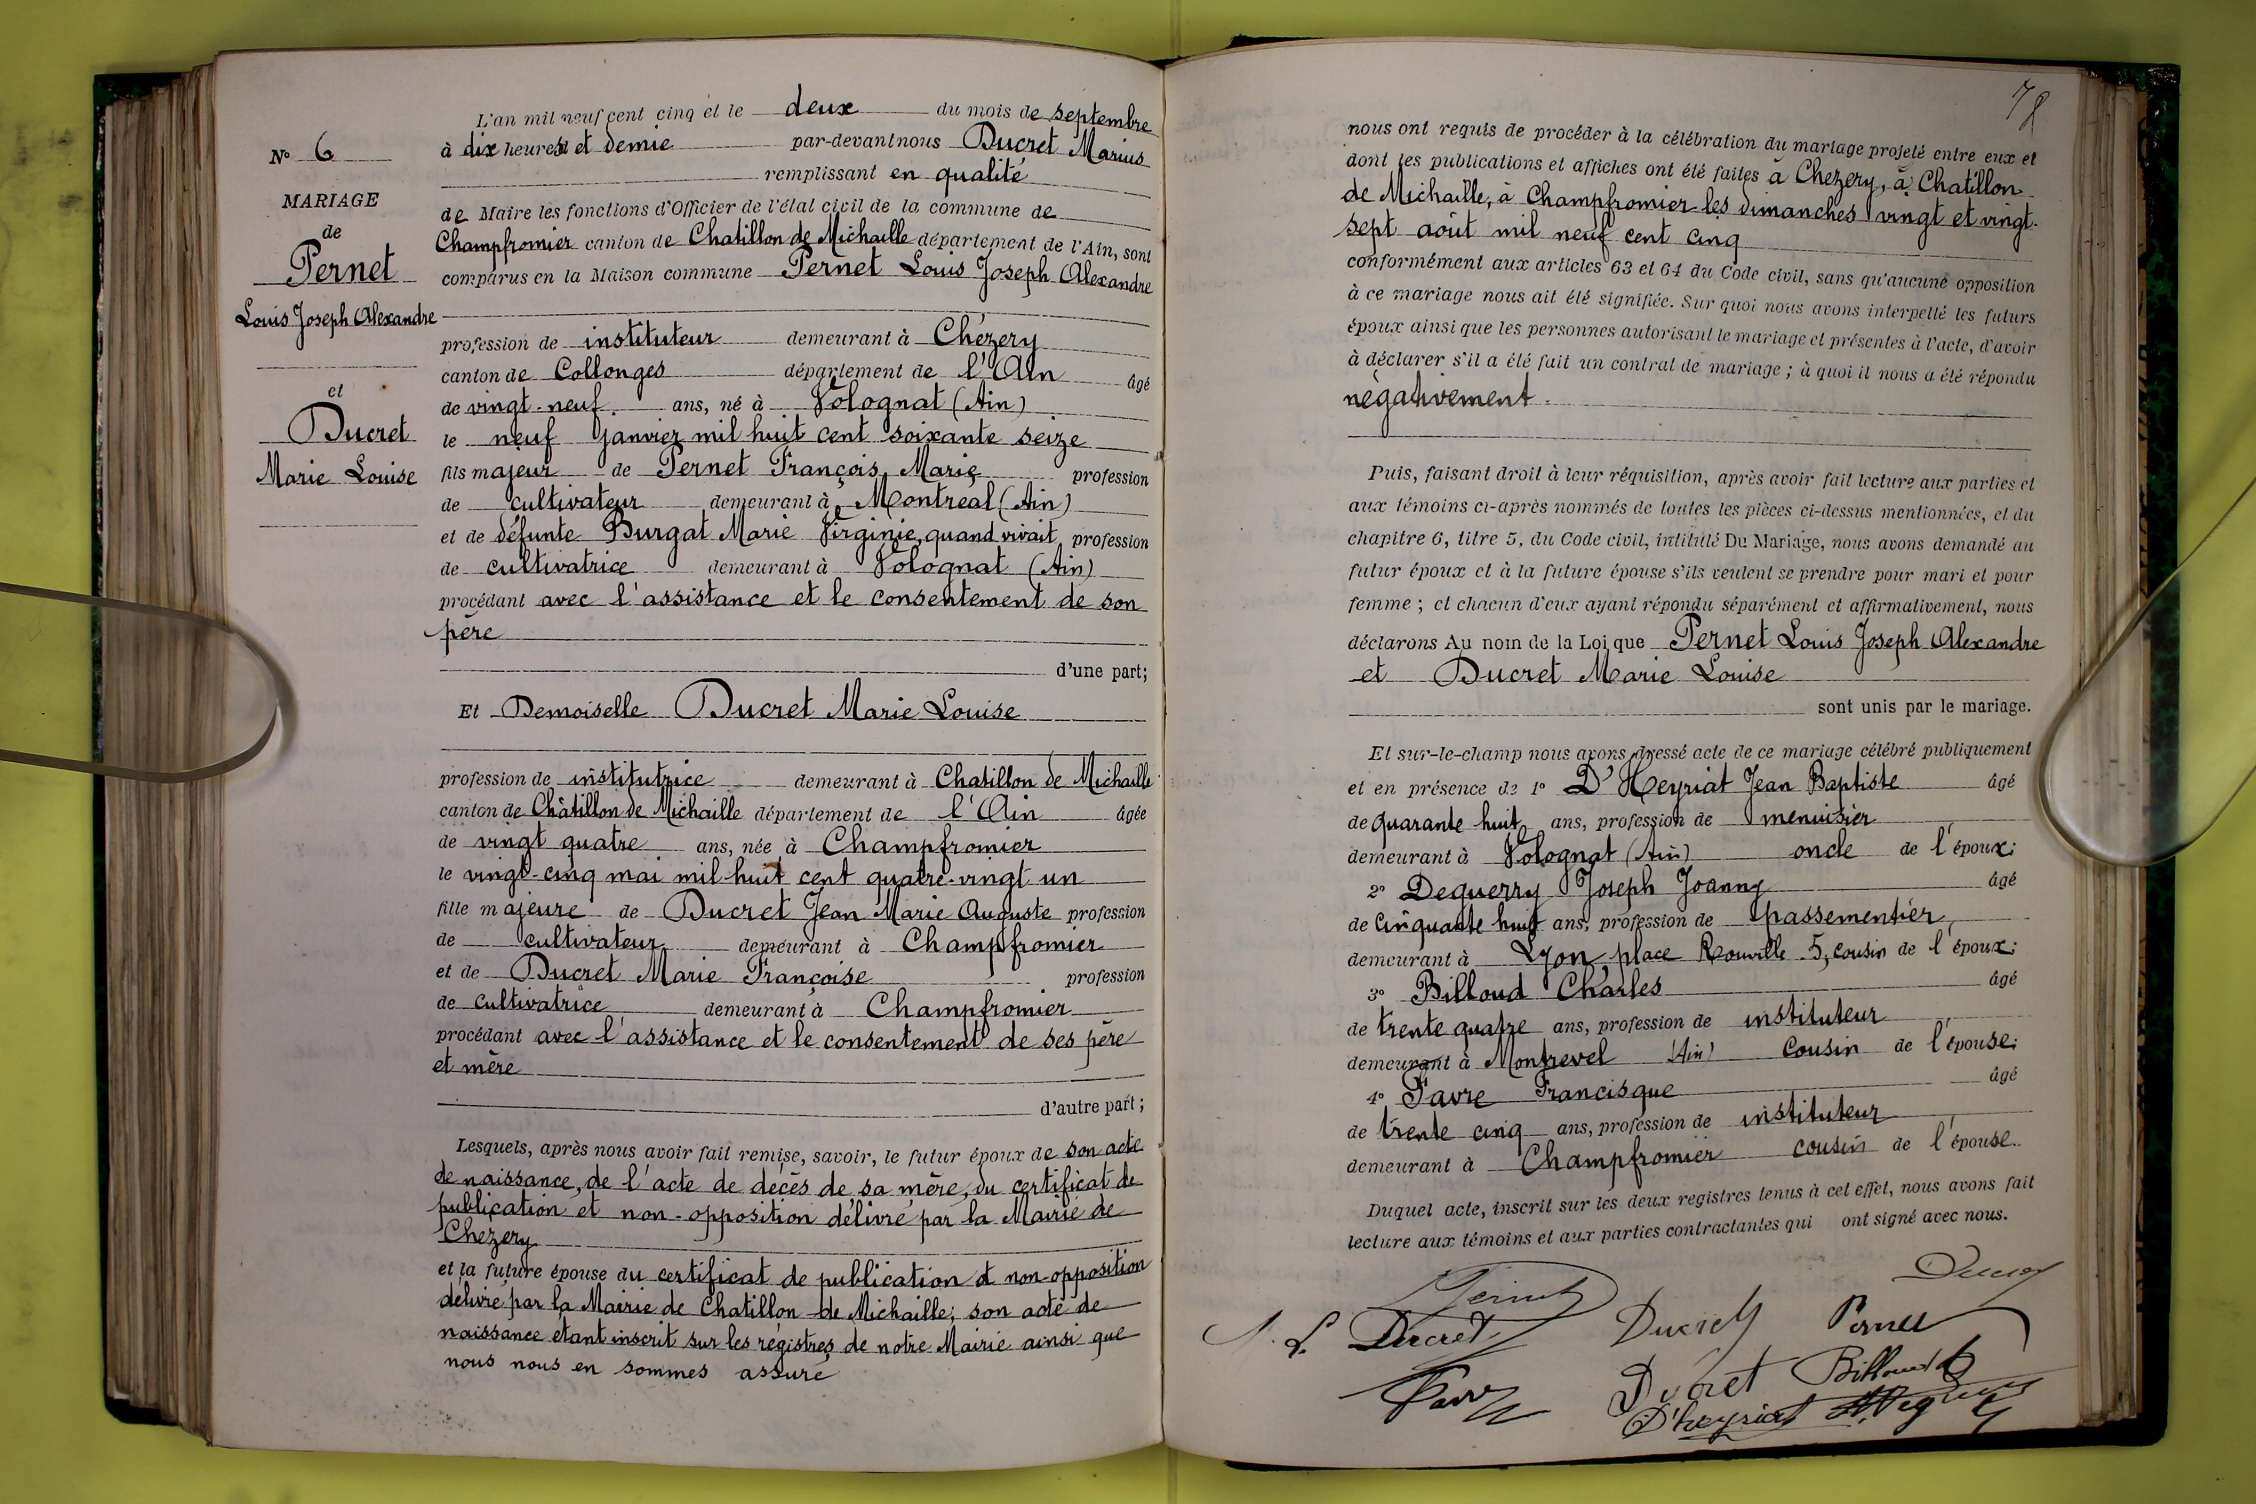 L'an mil neuf cent cinq et le deux du mois de septembre
N° 6
à dix heures et demie par-devant nous Ducret Marius
remplissant en qualité
MARIAGE
de Maire les fonctions d'Officier de l'état civil de la commune de
de
Champfromier canton de Chatillon de Michaille département de l'Ain, sont
Pernet
comparus en la Maison commune Pernet Louis Joseph Alexandre
Louis Joseph Alexandre
profession de instituteur demeurant à Chézery
canton de Collonges département de l'Ain âgé
et
de vingt-neuf ans, né à Volognat (Ain)
Ducret
le neuf Janvier mil huit cent soixante seize
Marie Louise
fils majeur de Pernet François Marie profession
de cultivateur demeurant à Montreal (Ain)
et de défunte Burgat Marie Virginie, quand vivait profession
de cultivatrice demeurant à Volognat (Ain)
procédant avec l'assistance et le consentement de son
père
d'une part;
Et Demoiselle Ducret Marie Louise
profession de institutrice demeurant à Chatillon de Michaille
canton de Châtillon de Michaille département de l'Ain âgée
de vingt quatre ans, née à Champfromier
le vingt-cinq mai mil huit cent quatre-vingt un
fille majeure de Ducret Jean Marie Auguste profession
de cultivateur demeurant à Champfromier
et de Ducret Marie Françoise profession
de cultivatrice demeurant à Champfromier
procédant avec l'assistance et le consentement de ses père
et mère
d'autre part;
Lesquels, après nous avoir fait remise, savoir, le futur époux de son acte
de naissance, de l'acte de décès de sa mère, du certificat de
publication et non-opposition délivré par la Mairie de
Chézery
et la future épouse du certificat de publication et non-opposition
délivré par la Mairie de Chatillon de Michaille; son acte de
naissance étant inscrit sur les régistres de notre Mairie ainsi que
nous nous en sommes assuré
78
nous ont requis de procéder à la célébration du mariage projeté entre eux et
dont les publications et affiches ont été faites à Chezery, à Chatillon
de Michaille, à Champfromier les dimanches vingt et vingt-
sept août mil neuf cent cinq
conformément aux articles 63 et 64 du Code civil, sans qu'aucune opposition
à ce mariage nous ait été signifiée. Sur quoi nous avons interpellé les futurs
époux ainsi que les personnes autorisant le mariage et présentes à l'acte, d'avoir
à déclarer s'il a été fait un contrat de mariage; à quoi il nous a été répondu
négativement.
Puis, faisant droit à leur réquisition, après avoir fait lecture aux parties et
aux témoins ci-après nommés de toutes les pièces ci-dessus mentionnées, et du
chapitre 6, titre 5, du Code civil, intitulé Du Mariage, nous avons demandé au
futur époux et à la future épouse s'ils veulent se prendre pour mari et pour
femme; et chacun d'eux ayant répondu séparément et affirmativement, nous
déclarons Au nom de la Loi que Pernet Louis Joseph Alexandre
et Ducret Marie Louise
sont unis par le mariage.
Et sur-le-champ nous avons dressé acte de ce mariage célébré publiquement
et en présence de 1° D'Heyriat Jean Baptiste âgé
de quarante huit ans, profession de menuisier
demeurant à Volognat (Ain) oncle de l'époux;
2° Deguerry Joseph Joanny âgé
de cinquante huit ans, profession de passementier
demeurant à Lyon, place Rouville 5, cousin de l'époux;
3° Billoud Charles âgé
de trente quatre ans, profession de instituteur
demeurant à Montrevel (Ain) cousin de l'épouse;
4° Favre Francisque âgé
de trente cinq ans, profession de instituteur
demeurant à Champfromier cousin de l'épouse.
Duquel acte, inscrit sur les deux registres tenus à cet effet, nous avons fait
lecture aux témoins et aux parties contractantes qui ont signé avec nous.
Ducret
Pernet
L. Ducret Ducret Pernet
Favre Ducret Billoud
D'heyriat